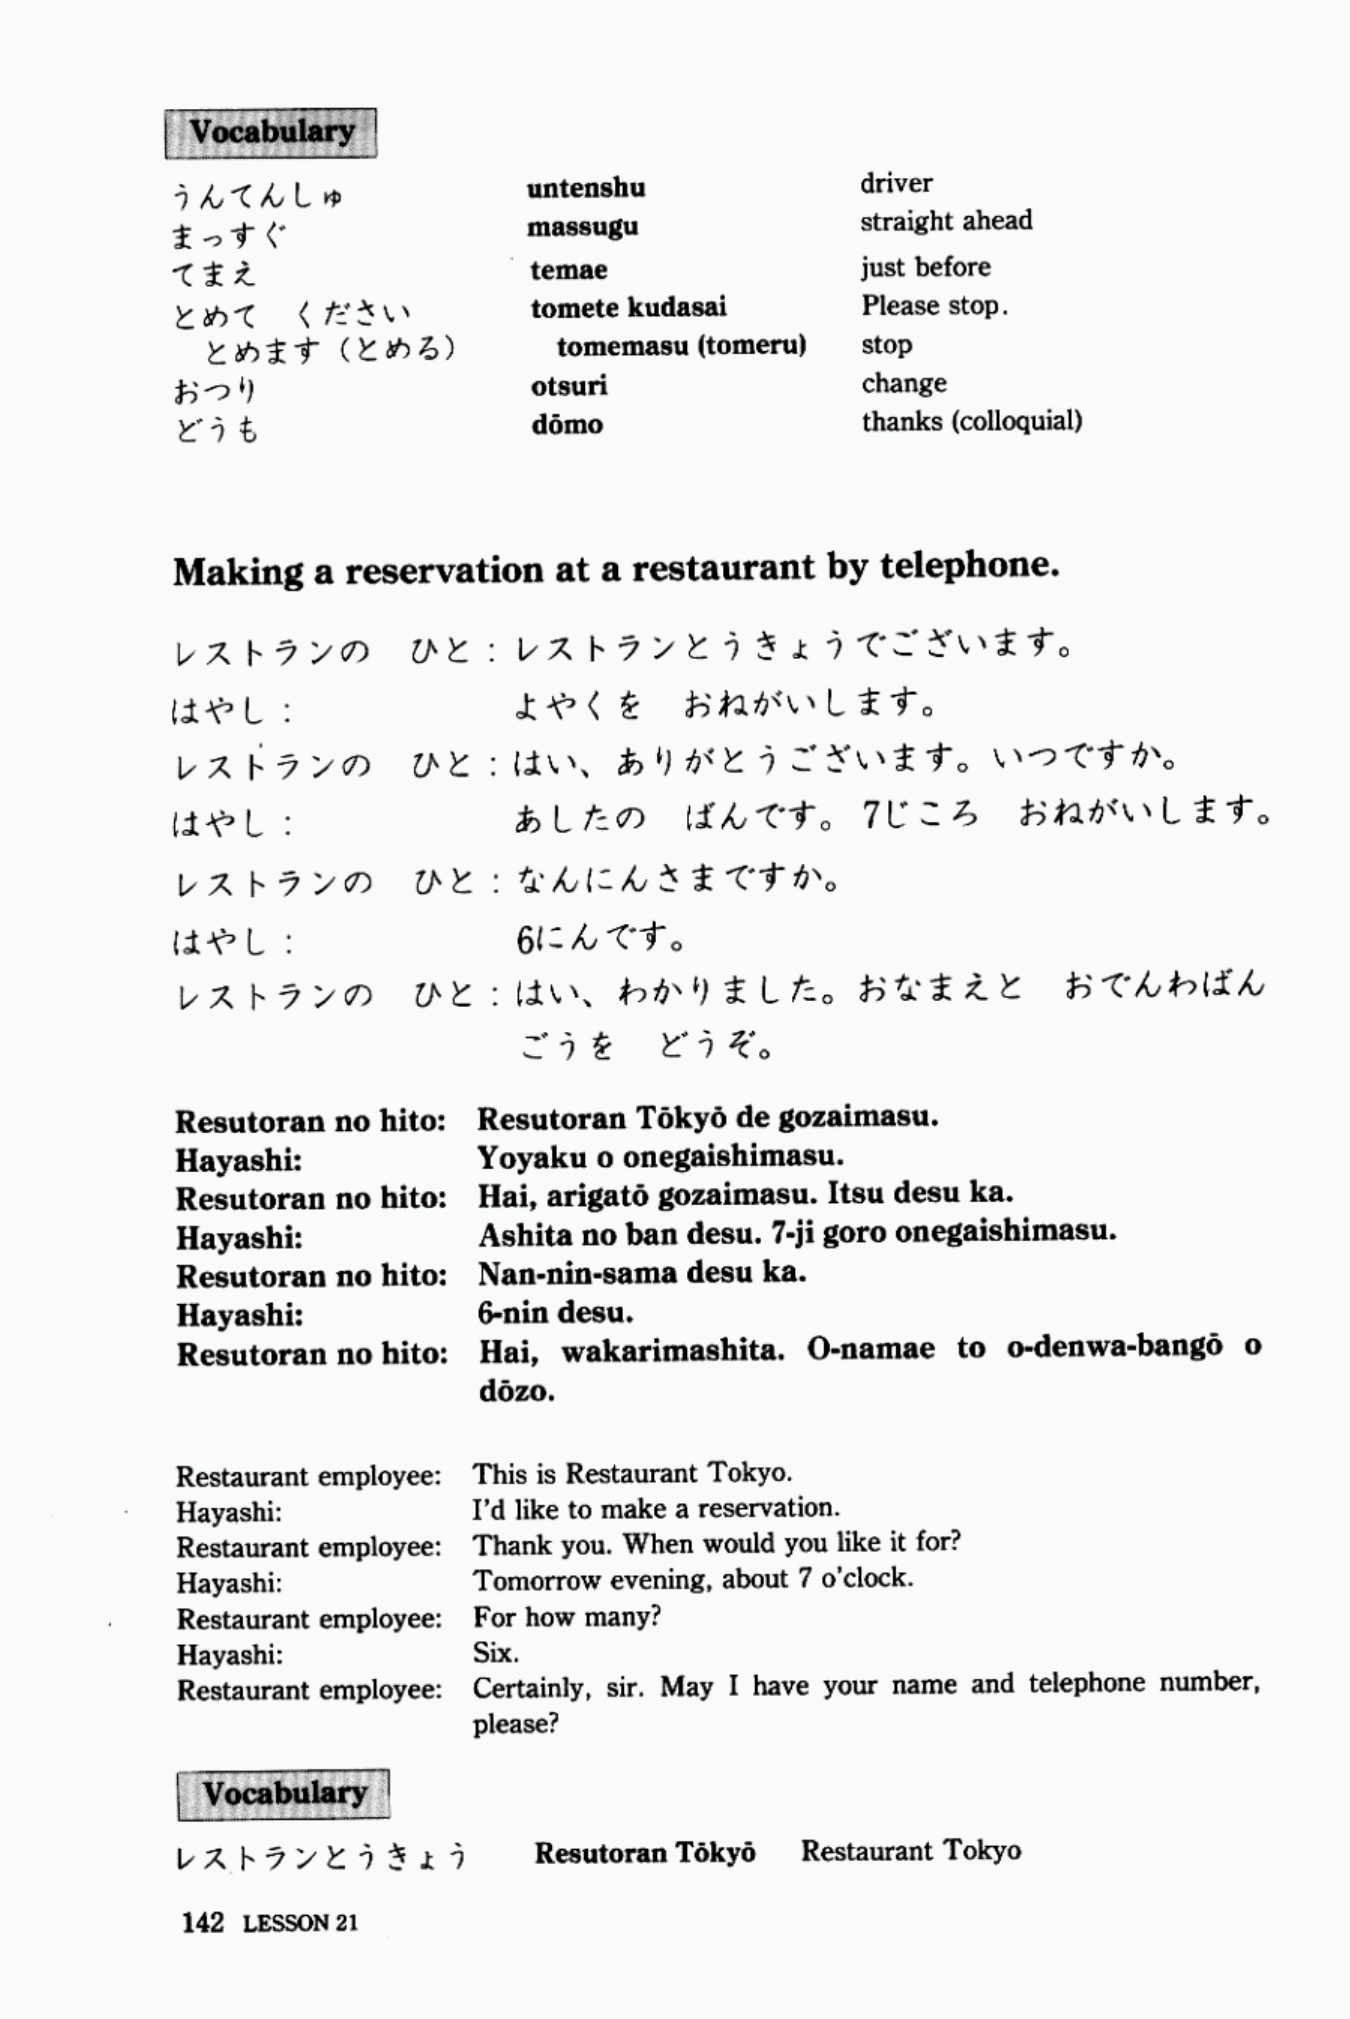 Vocabulary
うんてんしゅ untenshu driver
まっすぐ massugu straight ahead
てまえ temae just before
とめて ください tomete kudasai Please stop.
とめます（とめる） tomemasu (tomeru) stop
おつり otsuri change
どうも dōmo thanks (colloquial)
Making a reservation at a restaurant by telephone.
レストランの ひと：レストランとうきょうでございます。
はやし： よやくを おねがいします。
レストランの ひと：はい、ありがとうございます。いつですか。
はやし： あしたの ばんです。7じころ おねがいします。
レストランの ひと：なんにんさまですか。
はやし： 6にんです。
レストランの ひと：はい、わかりました。おなまえと おでんわばん
ごうを どうぞ。
Resutoran no hito: Resutoran Tōkyō de gozaimasu.
Hayashi: Yoyaku o onegaishimasu.
Resutoran no hito: Hai, arigatō gozaimasu. Itsu desu ka.
Hayashi: Ashita no ban desu. 7-ji goro onegaishimasu.
Resutoran no hito: Nan-nin-sama desu ka.
Hayashi: 6-nin desu.
Resutoran no hito: Hai, wakarimashita. O-namae to o-denwa-bangō o
dōzo.
Restaurant employee: This is Restaurant Tokyo.
Hayashi: I'd like to make a reservation.
Restaurant employee: Thank you. When would you like it for?
Hayashi: Tomorrow evening, about 7 o'clock.
Restaurant employee: For how many?
Hayashi: Six.
Restaurant employee: Certainly, sir. May I have your name and telephone number,
please?
Vocabulary
レストランとうきょう Resutoran Tōkyō Restaurant Tokyo
142 LESSON 21